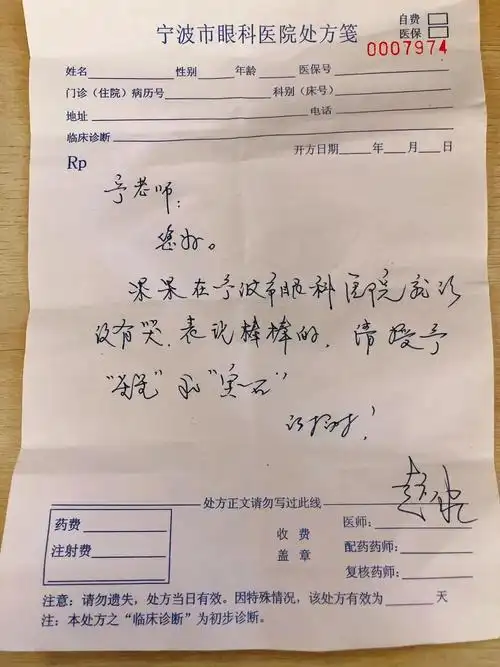 宁波市眼科医院处方笺
自费
医保
0007974
姓名 性别 年龄 医保号
门诊（住院）病历号 科别（床号）
地址 电话
临床诊断
Rp 开方日期 年 月 日
老师：
您好。
果果在宁波市眼科医院就诊
没有哭，表现棒棒的，请授予
“ ”和“宝石”
处方正文请勿写过此线
药费
注射费
收费
盖章
医师：
配药药师：
复核药师：
注意：请勿遗失，处方当日有效。因特殊情况，该处方有效为 天
注：本处方之“临床诊断”为初步诊断。